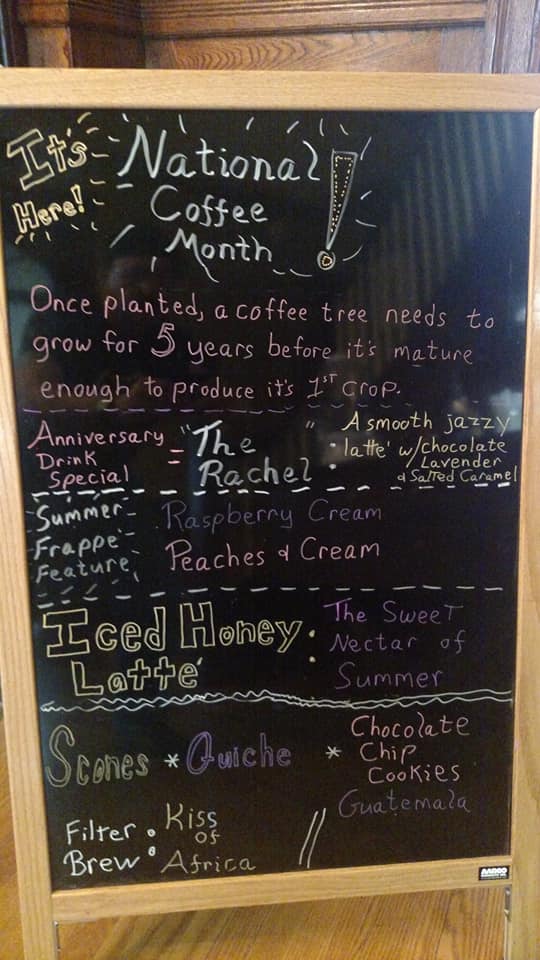 It's National
Here! Coffee
Month!
Once planted, a coffee tree needs to
grow for 5 years before it's mature
enough to produce it's 1ST crop.
Anniversary
Drink
Special
= "The
Rachel" :
A smooth jazzy
latté w/chocolate
Lavender
& Salted Caramel
Summer
Frappé
Feature
Raspberry Cream
Peaches & Cream
Iced Honey
Latté :
The Sweet
Nectar of
Summer
Scones * Quiche *
Chocolate
Chip
Cookies
Filter
Brew :
Kiss
of
Africa
//
Guatemala
AARCO